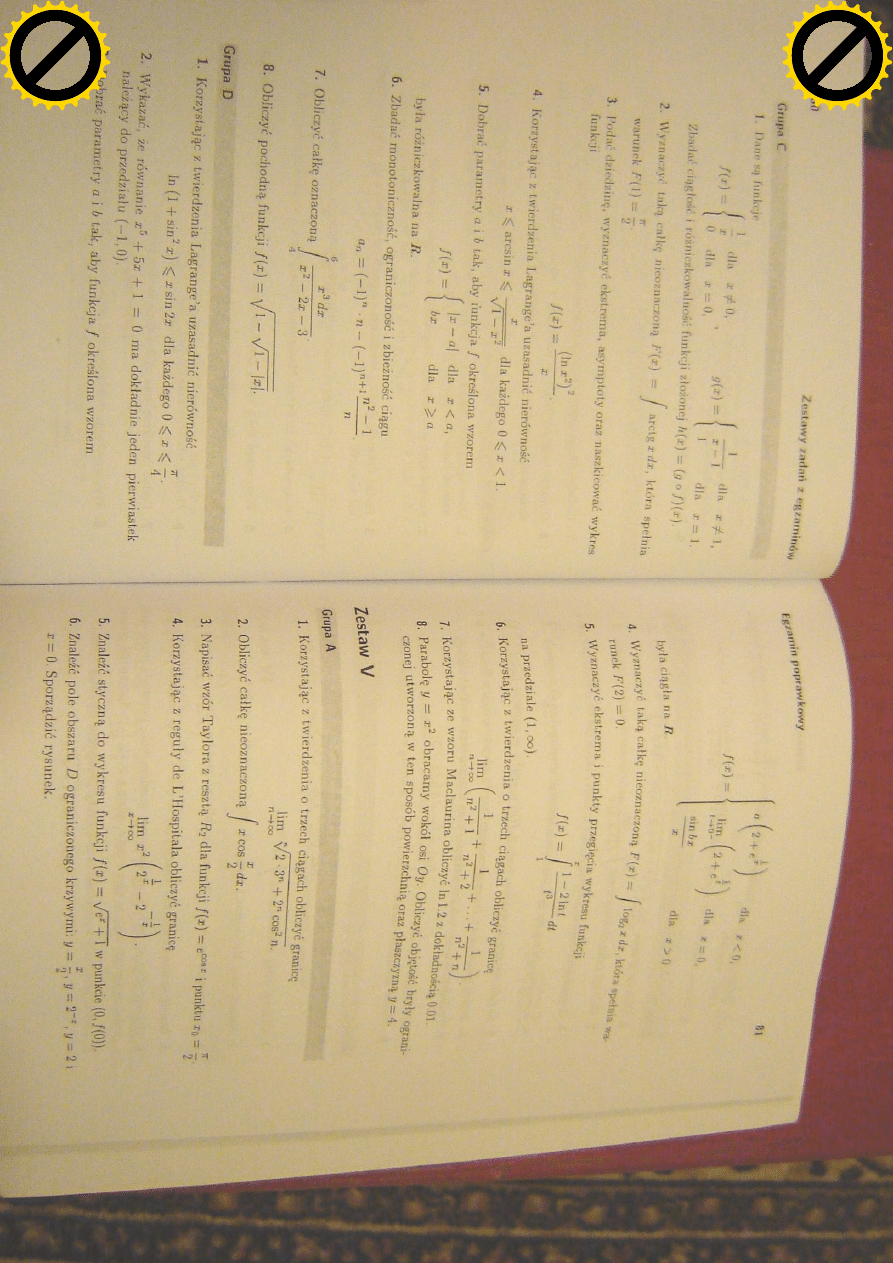 Zestawy zadań z egzaminów
Grupa C
1. Dane są funkcje
f(x) = { 1/x dla x ≠ 0, 0 dla x = 0, , g(x) = { 1/(x − 1) dla x ≠ 1, 1 dla x = 1.
Zbadać ciągłość i różniczkowalność funkcji złożonej h(x) = (g ∘ f)(x).
2. Wyznaczyć taką całkę nieoznaczoną F(x) = ∫ arctg x dx, która spełnia
warunek F(1) = π/2.
3. Podać dziedzinę, wyznaczyć ekstrema, asymptoty oraz naszkicować wykres
funkcji
f(x) = (ln x²)²/x.
4. Korzystając z twierdzenia Lagrange'a uzasadnić nierówność
x ⩽ arcsin x ⩽ x/√(1 − x²) dla każdego 0 ⩽ x < 1.
5. Dobrać parametry a i b tak, aby funkcja f określona wzorem
f(x) = { |x − a| dla x < a, bx dla x ⩾ a
była różniczkowalna na R.
6. Zbadać monotoniczność, ograniczoność i zbieżność ciągu
aₙ = (−1)ⁿ · n − (−1)ⁿ⁺¹ (n² − 1)/n.
7. Obliczyć całkę oznaczoną ∫₄⁶ x³ dx/(x² − 2x − 3).
8. Obliczyć pochodną funkcji f(x) = √(1 − √(1 − |x|)).
Grupa D
1. Korzystając z twierdzenia Lagrange'a uzasadnić nierówność
ln (1 + sin² x) ⩽ x sin 2x dla każdego 0 ⩽ x ⩽ π/4.
2. Wykazać, że równanie x⁵ + 5x + 1 = 0 ma dokładnie jeden pierwiastek
należący do przedziału (−1, 0).
parametry a i b tak, aby funkcja f określona wzorem
Egzamin poprawkowy 81
f(x) = { a(2 + e^(1/x)) dla x < 0, lim t→0− (2 + e^(1/t)) dla x = 0, sin bx/x dla x > 0
była ciągła na R.
4. Wyznaczyć taką całkę nieoznaczoną F(x) = ∫ log₂ x dx, która spełnia wa-
runek F(2) = 0.
5. Wyznaczyć ekstrema i punkty przegięcia wykresu funkcji
f(x) = ∫₁ˣ (1 − 2 ln t)/t³ dt
na przedziale (1, ∞).
6. Korzystając z twierdzenia o trzech ciągach obliczyć granicę
lim n→∞ (1/(n² + 1) + 1/(n² + 2) + … + 1/(n² + n)).
7. Korzystając ze wzoru Maclaurina obliczyć ln 1.2 z dokładnością 0.01.
8. Parabolę y = x² obracamy wokół osi Oy. Obliczyć objętość bryły ograni-
czonej utworzoną w ten sposób powierzchnią oraz płaszczyzną y = 4.
Zestaw V
Grupa A
1. Korzystając z twierdzenia o trzech ciągach obliczyć granicę
lim n→∞ ⁿ√(2 · 3ⁿ + 2ⁿ cos² n).
2. Obliczyć całkę nieoznaczoną ∫ x cos x/2 dx.
3. Napisać wzór Taylora z resztą R₂ dla funkcji f(x) = e^(cos x) i punktu x₀ = π/2.
4. Korzystając z reguły de L'Hospitala obliczyć granicę
lim x→∞ x² (2^(1/x) − 2^(−1/x)).
5. Znaleźć styczną do wykresu funkcji f(x) = √(eˣ + 1) w punkcie (0, f(0)).
6. Znaleźć pole obszaru D ograniczonego krzywymi: y = x/2, y = 2⁻ˣ, y = 2 i
x = 0. Sporządzić rysunek.